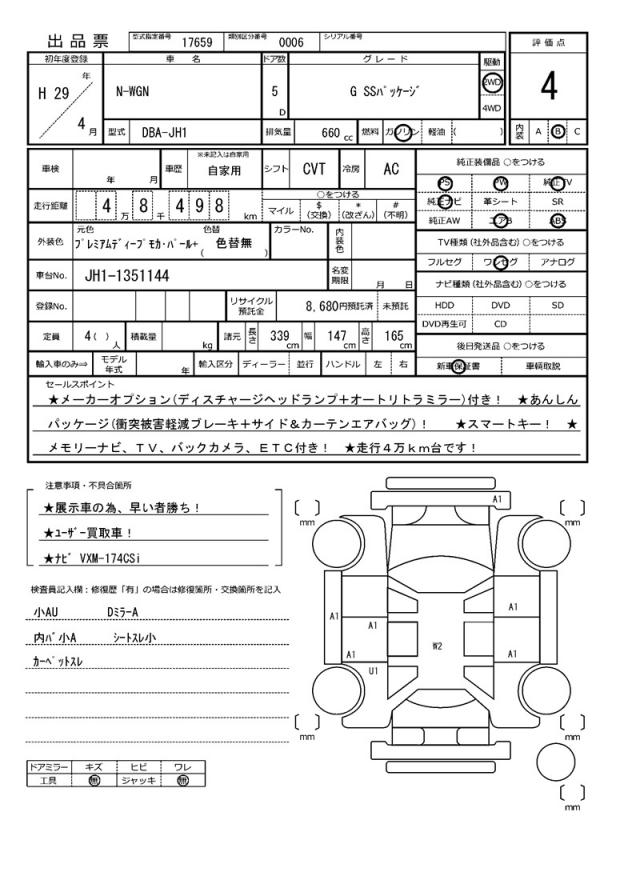 出品票 型式指定番号 17659 類別区分番号 0006 シリアル番号
評価点
4
内装 A B C
初年度登録 車名 ドア数 グレード 駆動
H 29 年 4 月 N-WGN 5 D G SSパッケージ 2WD
4WD
型式 DBA-JH1 排気量 660 cc 燃料 ガソリン 軽油 ( )
車検 年 月 車歴 ※未記入は自家用 自家用 シフト CVT 冷房 AC
走行距離 4 万 8 千 4 9 8 km ○をつける
マイル $ (交換) * (改ざん) # (不明)
外装色 元色 色替 カラーNo. 内装色
プレミアムディープモカ・パール+ ( 色替無 )
車台No. JH1-1351144 名変期限 月 日
登録No. リサイクル預託金 8,680円預託済 未預託
定員 4( ) 人 積載量 kg 諸元 長さ 339 cm 幅 147 cm 高さ 165 cm
輸入車のみ⇒ モデル年式 年 輸入区分 ディーラー 並行 ハンドル 左 右
純正装備品 ○をつける
PS PW 純正TV
純正ナビ 革シート SR
純正AW エアB ABS
TV種類 (社外品含む) ○をつける
フルセグ ワンセグ アナログ
ナビ種類 (社外品含む) ○をつける
HDD DVD SD
DVD再生可 CD
後日発送品 ○をつける
新車保証書 車輌取説
セールスポイント
★メーカーオプション(ディスチャージヘッドランプ＋オートリトラミラー)付き！ ★あんしん
パッケージ(衝突被害軽減ブレーキ＋サイド＆カーテンエアバッグ)！ ★スマートキー！ ★
メモリーナビ、ＴＶ、バックカメラ、ＥＴＣ付き！ ★走行４万ｋｍ台です！
注意事項・不具合箇所
★展示車の為、早い者勝ち！
★ユーザー買取車！
★ナビ VXM-174CSi
検査員記入欄：修復歴「有」の場合は修復箇所・交換箇所を記入
小AU DミラーA
内バ小A シートスレ小
カーペットスレ
ドアミラー キズ ヒビ ワレ
工具 無 ジャッキ 無
A1
[ ] mm [ ] mm
A1 A1 A1
W2
A1 U1 A1
[ ] mm [ ] mm
[ ] mm